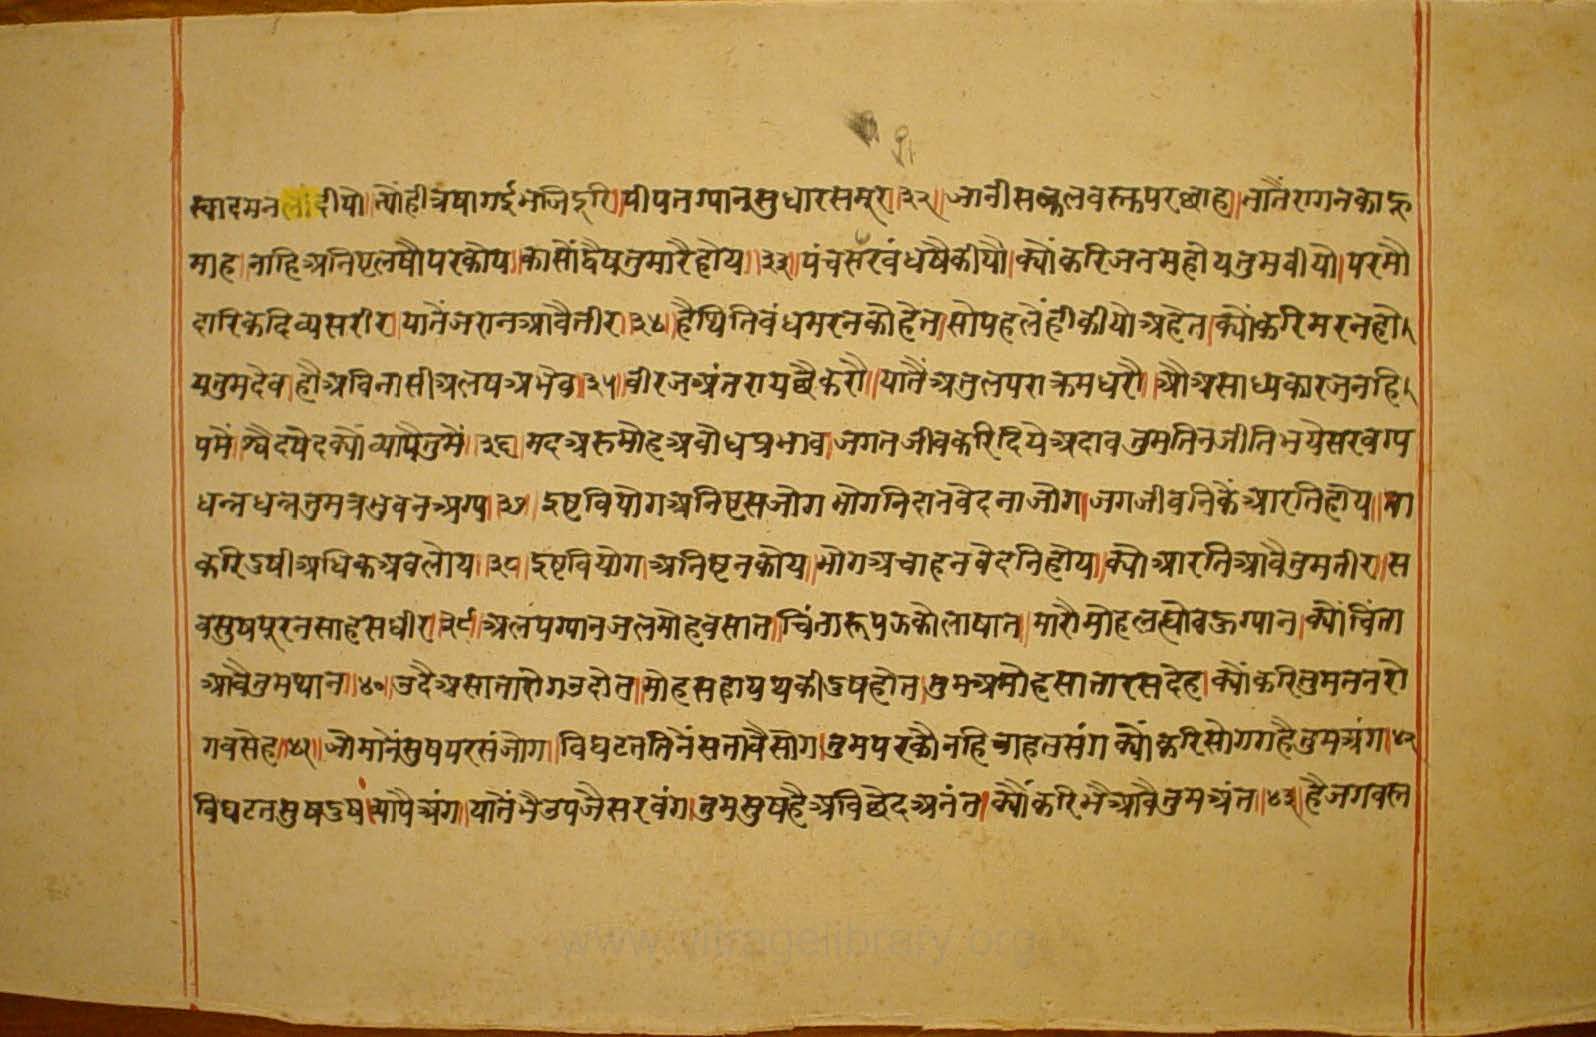 स्वादमनलांदीयो॥त्यौहीत्रषागईभाजिदूरि।पीपनग्यानसुधारसमूरा३२॥जानीसकलवस्तपरछाह॥तातैंरागनकाहू
माह।नाहिअनिष्टलषौपरकोय।कासौंद्वैषतुमारैहोय॥३३॥पंचसरवंधषैकीयौ।क्यौंकरिजनमहोयतुमवीयो।परमौ
दारिकदिव्यसरीर।यातैंजरानआवैतीर।३४।हैथितिवंधमरनकोहेत।सोपहलैंहीकीयोअहेत।क्यौंकरिमरनहो
यतुमदेव।हौअविनासीअलषअभेव।३५।वीरजअंतरायछैकरौ॥यातैंअतुलपराक्रमधरौ॥औअसाध्यकारजनहि
पमैं।स्वैदषेदक्यौंव्यापैतुमैं॥३६।मदअरुमोहअवौधप्रभाव।जगतजीवकरिदियेअदाव।तुमतिनजीतिभयेसरवग्य
धन्नधन्नतुमत्रभुवनअग्य।३७।इष्टवियोगअनिष्टसजोग।भोगनिदानवेदनाजोग।जगजीवनिकैंआरतिहोय॥ता
करिदुषीअधिकअवलोय।३८।इष्टवियोगअनिष्टनकोय।भोगअचाहनवेदनिहोय।क्यौआरतिआवैतुमतीर।स
वसुषपूरनसाहसधीर।३९।अलपग्यानजलमोहवसात।चिंतारूपझकोलाषात।मारौमोहलह्योवहुग्यान।क्यौंचिंता
आवैतुमथान॥४०।उदैअसातारोगउदोत।मोहसहाययकीदुषहोत।तुमअमोहसातारसदेह।क्यौंकरितुमतनरो
गवसेह।४१॥जोमानैंसुषपरसंजोग।विघटततिनैंसतावैसोग।तुमपरकौनहिचाहतसंग।क्यौंकरिसोगगहैतुमअंग।४२
विघटतसुषदुषव्यापैअंग।यातैंभैउपजैसरवंग।तुमसुषहैअविछेदअनंत।क्यौंकरिभैआवैतुमअंत॥४३।हैजगवस्त
www.vitragelibrary.org